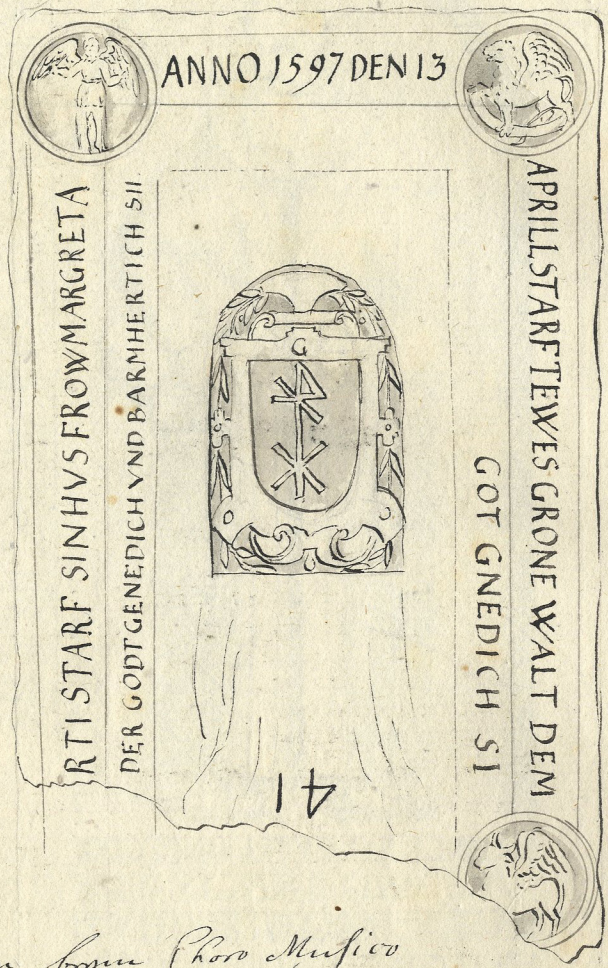 ANNO 1597 DEN 13
APRILL STARF TEWES GRONE WALT DEM
GOT GNEDICH SI
RTI STARF SINHVSFROW MARGRETA
DER GODT GENEDICH VND BARMHERTICH SII
G
41
Choro Musico